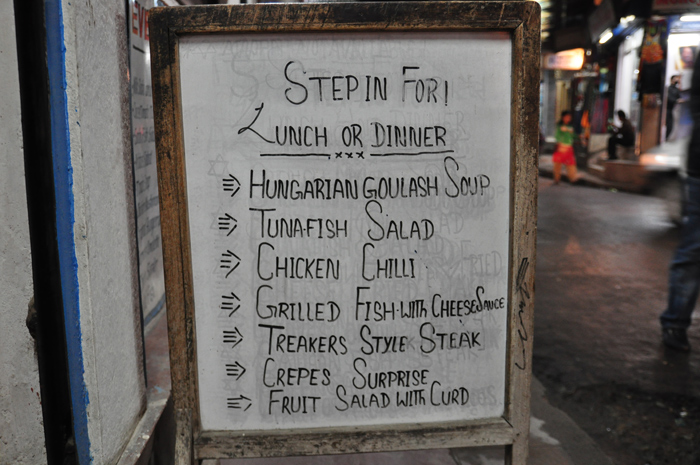 STEP IN FOR!
LUNCH OR DINNER
xxx
HUNGARIAN GOULASH SOUP
TUNA·FISH SALAD
CHICKEN CHILLI
GRILLED FISH·WITH CHEESE SAUCE
TREAKERS STYLE STEAK
CREPES SURPRISE
FRUIT SALAD WITH CURD